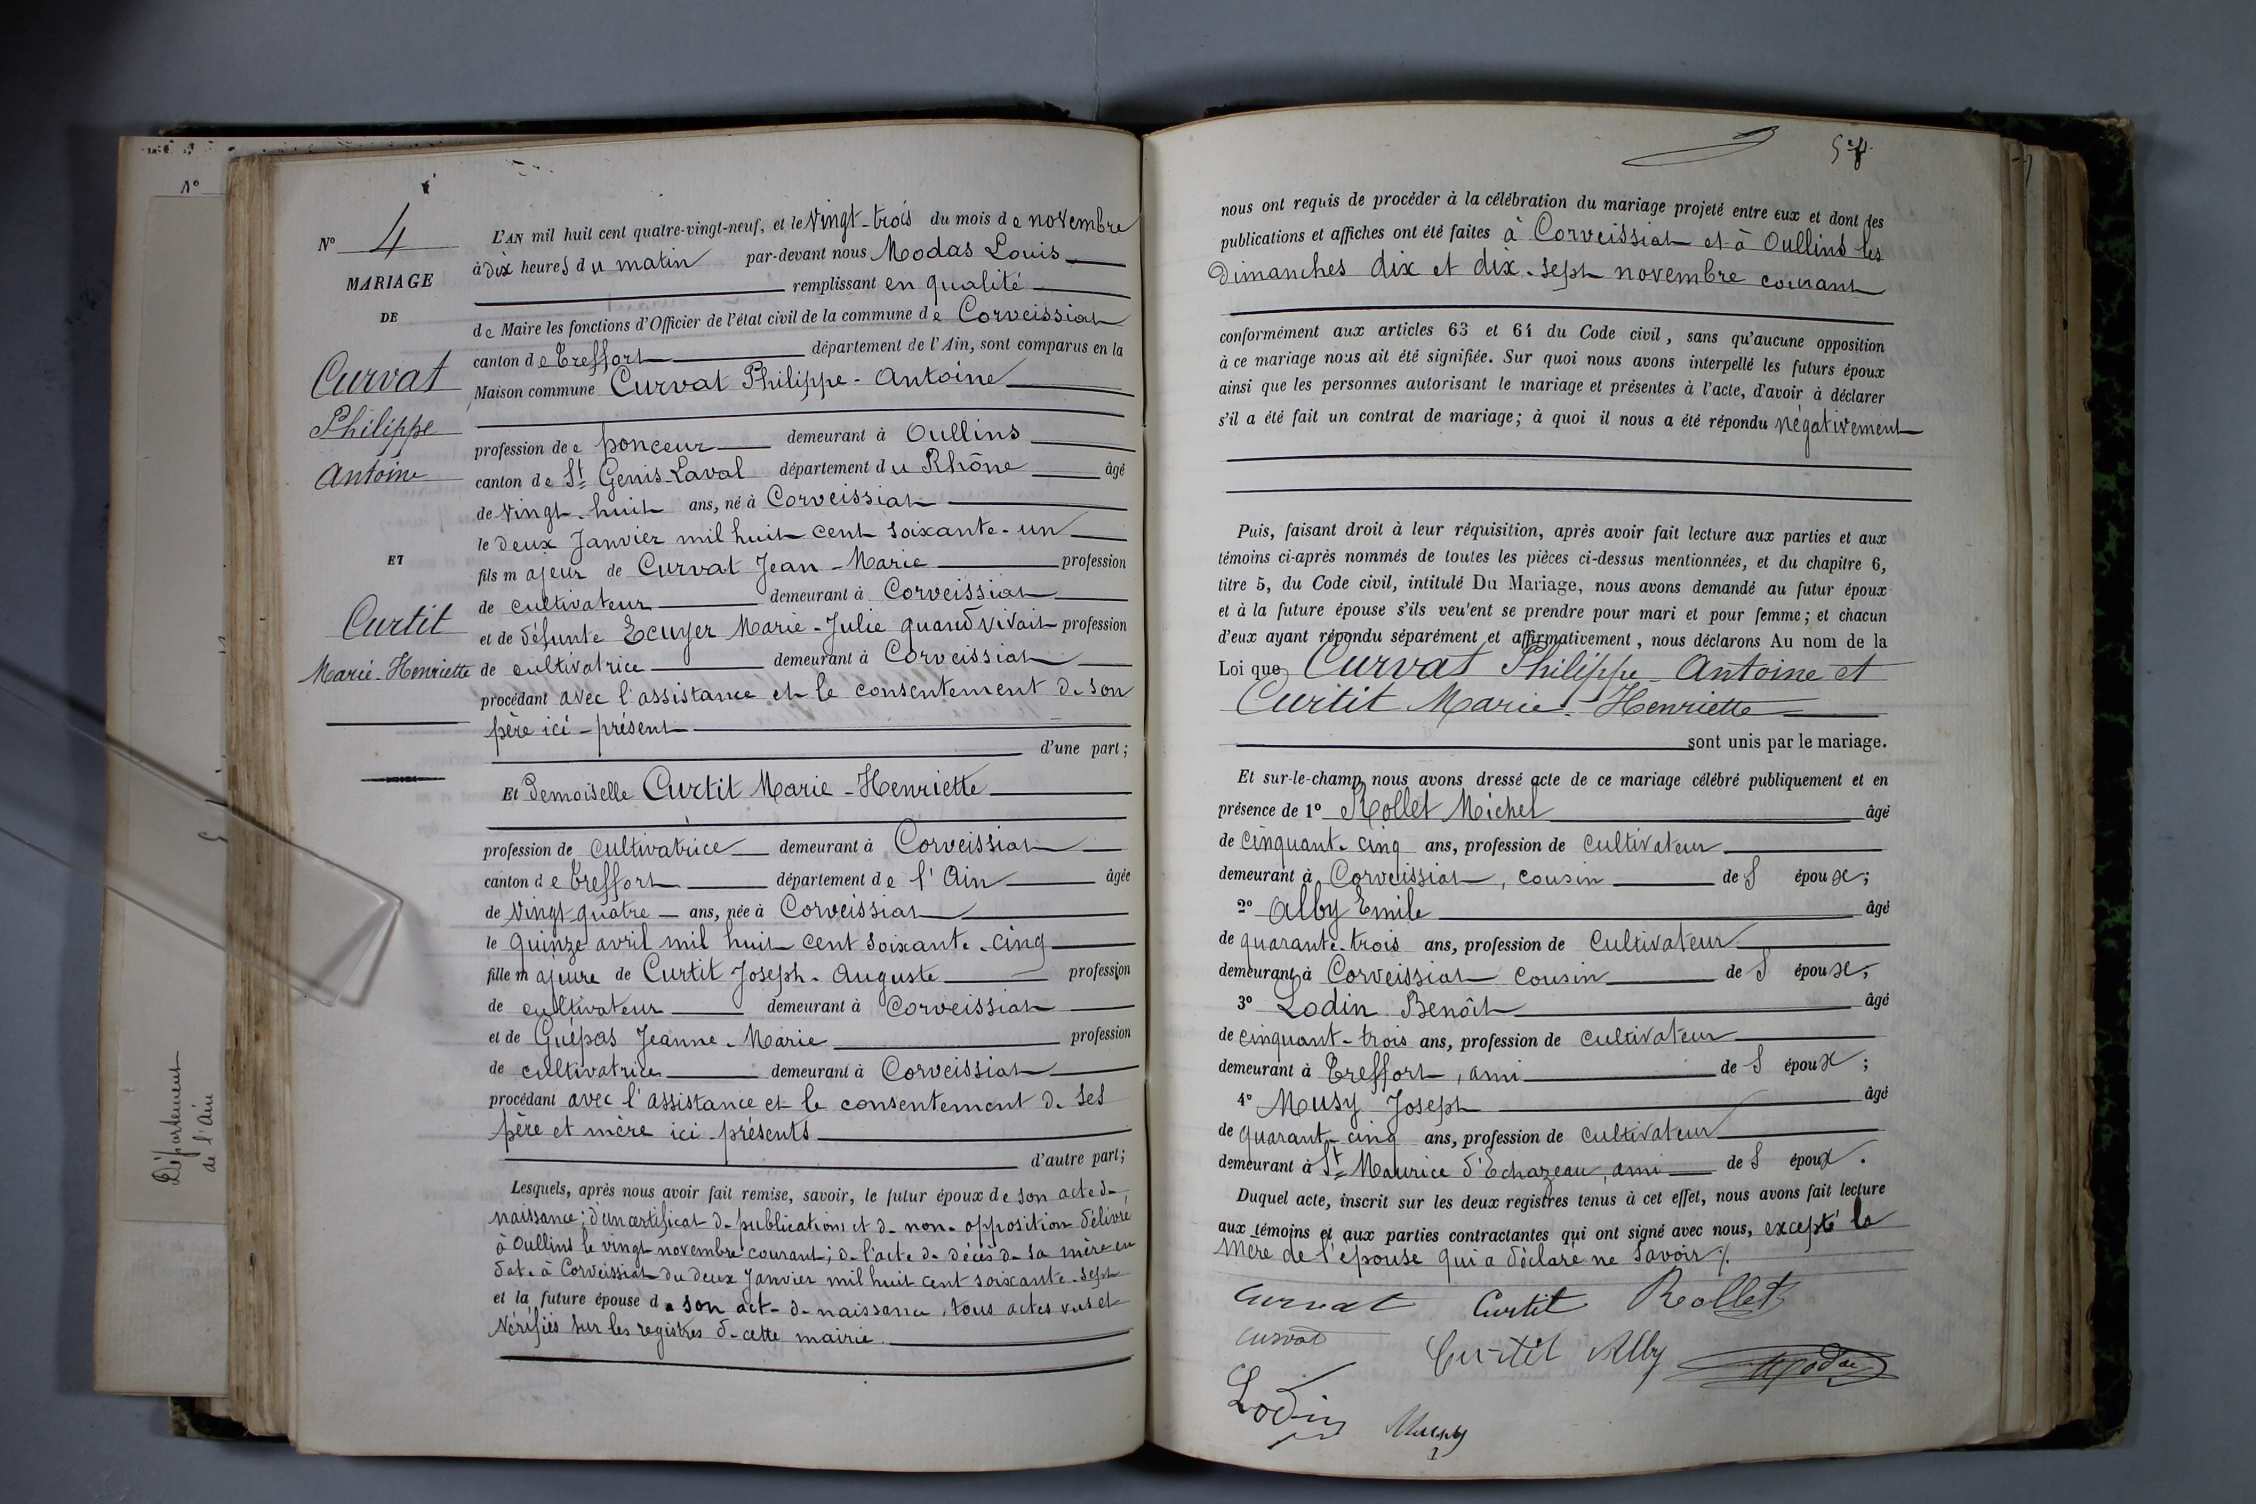 N°
Département
de l'Ain
N° 4
MARIAGE
DE
Curvat
Philippe
Antoine
ET
Curtit
Marie-Henriette
L'AN mil huit cent quatre-vingt-neuf, et le vingt-trois du mois de novembre
à dix heures du matin par-devant nous Modas Louis
remplissant en qualité
de Maire les fonctions d'Officier de l'état civil de la commune de Corveissiat
canton de Treffort département de l'Ain, sont comparus en la
Maison commune Curvat Philippe-Antoine
profession de ponceur demeurant à Oullins
canton de St Genis-Laval département du Rhône âgé
de vingt-huit ans, né à Corveissiat
le deux Janvier mil huit cent soixante-un
fils majeur de Curvat Jean-Marie profession
de cultivateur demeurant à Corveissiat
et de défunte Ecuyer Marie-Julie quand vivait profession
de cultivatrice demeurant à Corveissiat
procédant avec l'assistance et le consentement de son
père ici-présent
d'une part;
Et Demoiselle Curtit Marie-Henriette
profession de cultivatrice demeurant à Corveissiat
canton de Treffort département de l'Ain âgée
de vingt-quatre ans, née à Corveissiat
le quinze avril mil huit cent soixante-cinq
fille majeure de Curtit Joseph-Auguste profession
de cultivateur demeurant à Corveissiat
et de Guépas Jeanne-Marie profession
de cultivatrice demeurant à Corveissiat
procédant avec l'assistance et le consentement de ses
père et mère ici-présents
d'autre part;
Lesquels, après nous avoir fait remise, savoir, le futur époux de son acte de
naissance; d'un certificat de publications et de non-opposition délivré
à Oullins le vingt novembre courant; de l'acte de décès de sa mère en
date à Corveissiat du deux Janvier mil huit cent soixante-sept
et la future épouse de son acte de naissance, tous actes vus et
vérifiés sur les registres de cette mairie.
nous ont requis de procéder à la célébration du mariage projeté entre eux et dont les
publications et affiches ont été faites à Corveissiat et à Oullins les
Dimanches dix et dix-sept novembre courant
conformément aux articles 63 et 64 du Code civil, sans qu'aucune opposition
à ce mariage nous ait été signifiée. Sur quoi nous avons interpellé les futurs époux
ainsi que les personnes autorisant le mariage et présentes à l'acte, d'avoir à déclarer
s'il a été fait un contrat de mariage; à quoi il nous a été répondu négativement
Puis, faisant droit à leur réquisition, après avoir fait lecture aux parties et aux
témoins ci-après nommés de toutes les pièces ci-dessus mentionnées, et du chapitre 6,
titre 5, du Code civil, intitulé Du Mariage, nous avons demandé au futur époux
et à la future épouse s'ils veu'ent se prendre pour mari et pour femme; et chacun
d'eux ayant répondu séparément et affirmativement, nous déclarons Au nom de la
Loi que Curvat Philippe-Antoine et
Curtit Marie-Henriette
sont unis par le mariage.
Et sur-le-champ nous avons dressé acte de ce mariage célébré publiquement et en
présence de 1° Rollet Michel âgé
de cinquant-cinq ans, profession de cultivateur
demeurant à Corveissiat, cousin des époux;
2° Alby Emile âgé
de quarante-trois ans, profession de cultivateur
demeurant à Corveissiat cousin des époux;
3° Lodin Benoît âgé
de cinquant-trois ans, profession de cultivateur
demeurant à Treffort, ami des époux;
4° Musy Joseph âgé
de quarant-cinq ans, profession de cultivateur
demeurant à St Maurice d'Echazeau, ami des époux.
Duquel acte, inscrit sur les deux registres tenus à cet effet, nous avons fait lecture
aux témoins et aux parties contractantes qui ont signé avec nous, excepté la
mère de l'épouse qui a déclaré ne savoir ./.
Curvat Curtit Rollet
curvat Curtit Alby Modas
Lodin Musy